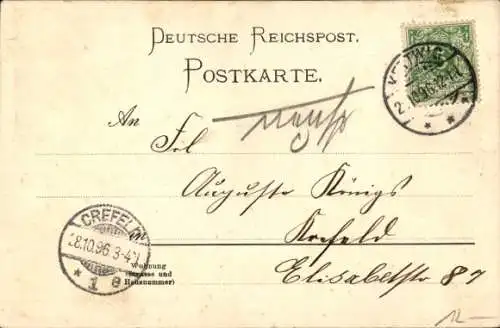 DEUTSCHE REICHSPOST.
POSTKARTE.
An
Frl
Auguste Königs
Krefeld
Elisabetstr 87
CREFELD
28.10.96 3-4
* 1 e
Wohnung
(Strasse und
Hausnummer)
12 —